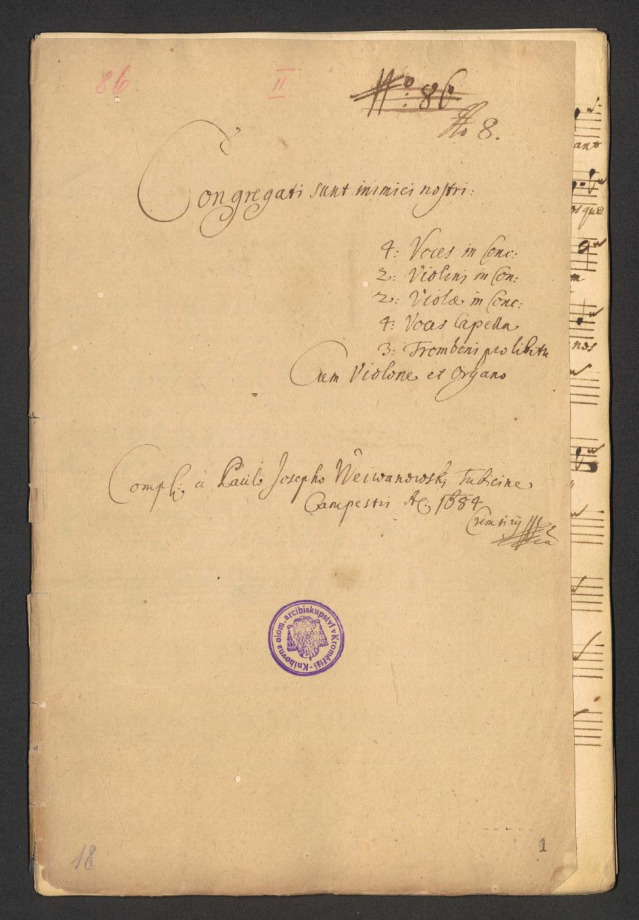 86
II
No: 86
No 8.
Congregati sunt inimici nostri:
4: Voces in Conc:
2: Violini in Con:
2: Violæ in Conc:
4: Voces Capella
3: Tromboni pro libitu
Cum Violone et Organo
à Paulo Josepho Weiwanowsky Tubicine
Campestri Ao 1684
Cremsirij
Knihovna olom. arcibiskupství v Kroměříži
18
1